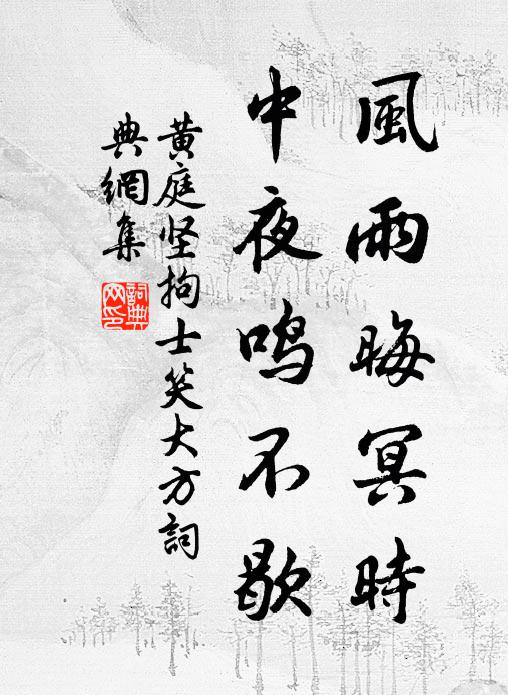 風雨晦冥時
中夜鸣不歇
黄庭坚拘士笑大方詞
典網集
詞典网印